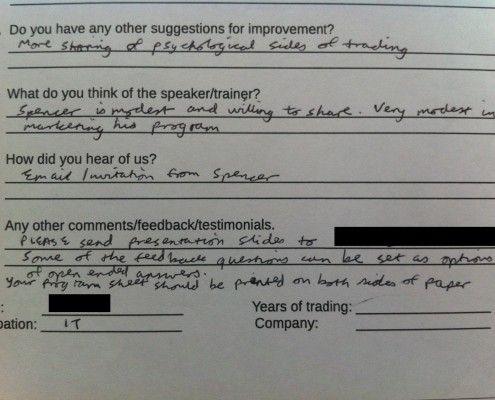 Do you have any other suggestions for improvement?
More sharing of psychological sides of trading
What do you think of the speaker/trainer?
Spencer is modest and willing to share. Very modest in
marketing his program
How did you hear of us?
Email Invitation from Spencer
Any other comments/feedback/testimonials.
PLEASE send presentation slides to
Some of the feedback questions can be set as options
of open ended answers.
Your program sheet should be printed on both sides of paper
:
Years of trading:
pation: IT
Company: